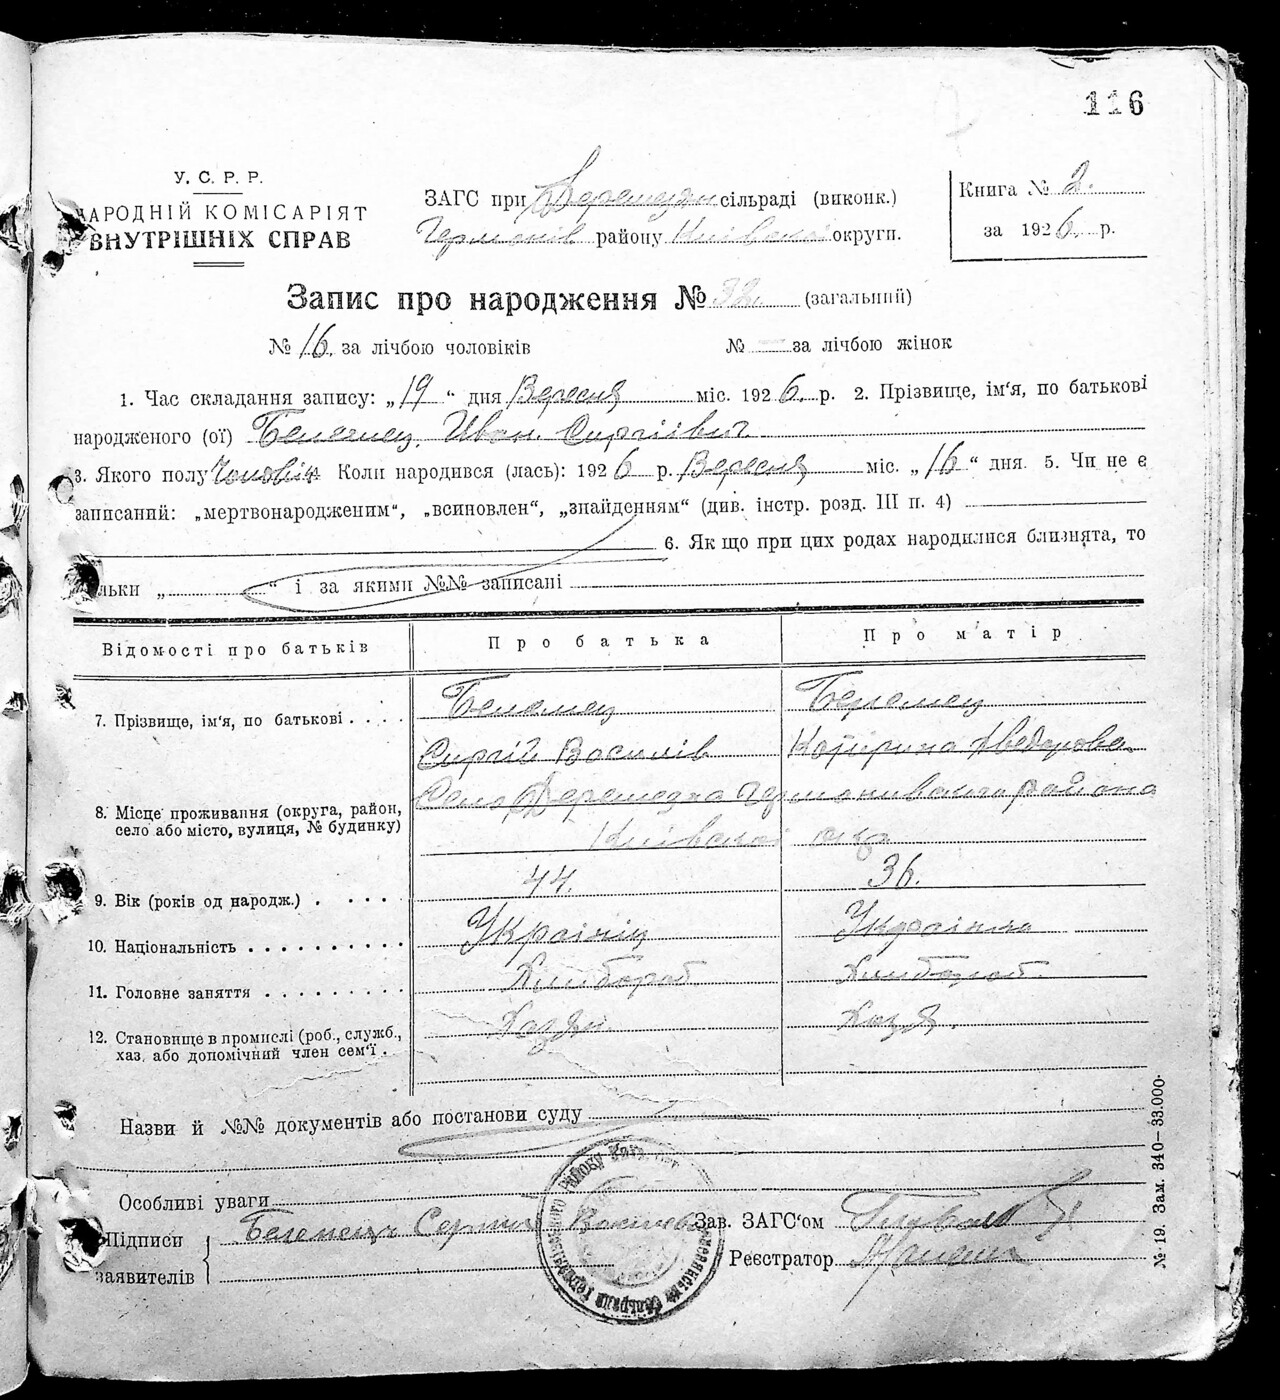 116
У. С. Р. Р.
НАРОДНІЙ КОМІСАРІЯТ
ВНУТРІШНІХ СПРАВ
ЗАГС при сільраді (виконк.)
району Київської округи.
Книга № 2.
за 1926. р.
Запис про народження № 32. (загальний)
№ 16. за лічбою чоловіків № — за лічбою жінок
1. Час складання запису: „19“ дня Вересня міс. 1926. р. 2. Прізвище, ім'я, по батькові
народженого (ої) Белемец Иван Сиргіівич
3. Якого полу Чоловік Коли народився (лась): 1926 р. Вересня міс. „16“ дня. 5. Чи не є
записаний: „мертвонародженим“, „всиновлен“, „знайденням“ (див. інстр. розд. III п. 4)
6. Як що при цих родах народилися близнята, то
льки „ “ і за якими №№ записані
Відомості про батьків
Про батька
Про матір
7. Прізвище, ім'я, по батькові . . . .
Белемец
Сиргій Василів
Катирина
8. Місце проживання (округа, район,
село або місто, вулиця, № будинку)
Село района
Київської окр
9. Вік (років од народж.) . . . . .
44.
36.
10. Національність . . . . . . . . . .
Україніц
Українка
11. Головне заняття . . . . . . . . .
Хлибороб
Хлибороб
12. Становище в промислі (роб., служб.,
хаз. або допомічний член сем'ї .
Хазяін
Хазя.
Назви й №№ документів або постанови суду
Особливі уваги
Підписи
заявителів
Белемець Сергий Василев
Зав. ЗАГС'ом
Реєстратор
№ 19. Зам. 340—33.000.